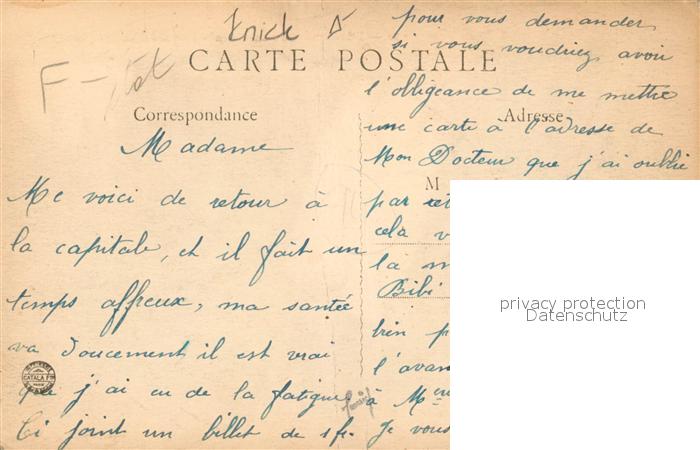 Knick
F - Ist
CARTE POSTALE
Correspondance
Adresse
Madame
Me voici de retour à
la capitale, et il fait un
temps affreux, ma santée
va doucement il est vrai
que j'ai eu de la fatigue
Ci joint un billet de 1 fr.
pour vous demander
si vous voudriez avoir
l'obligeance de me mettre
une carte à l'adresse de
Mon Docteur que j'ai oublié
M
par
cela
la
Bibi
bien
l'avan
à Me
Je vous
privacy protection
Datenschutz
CATALA